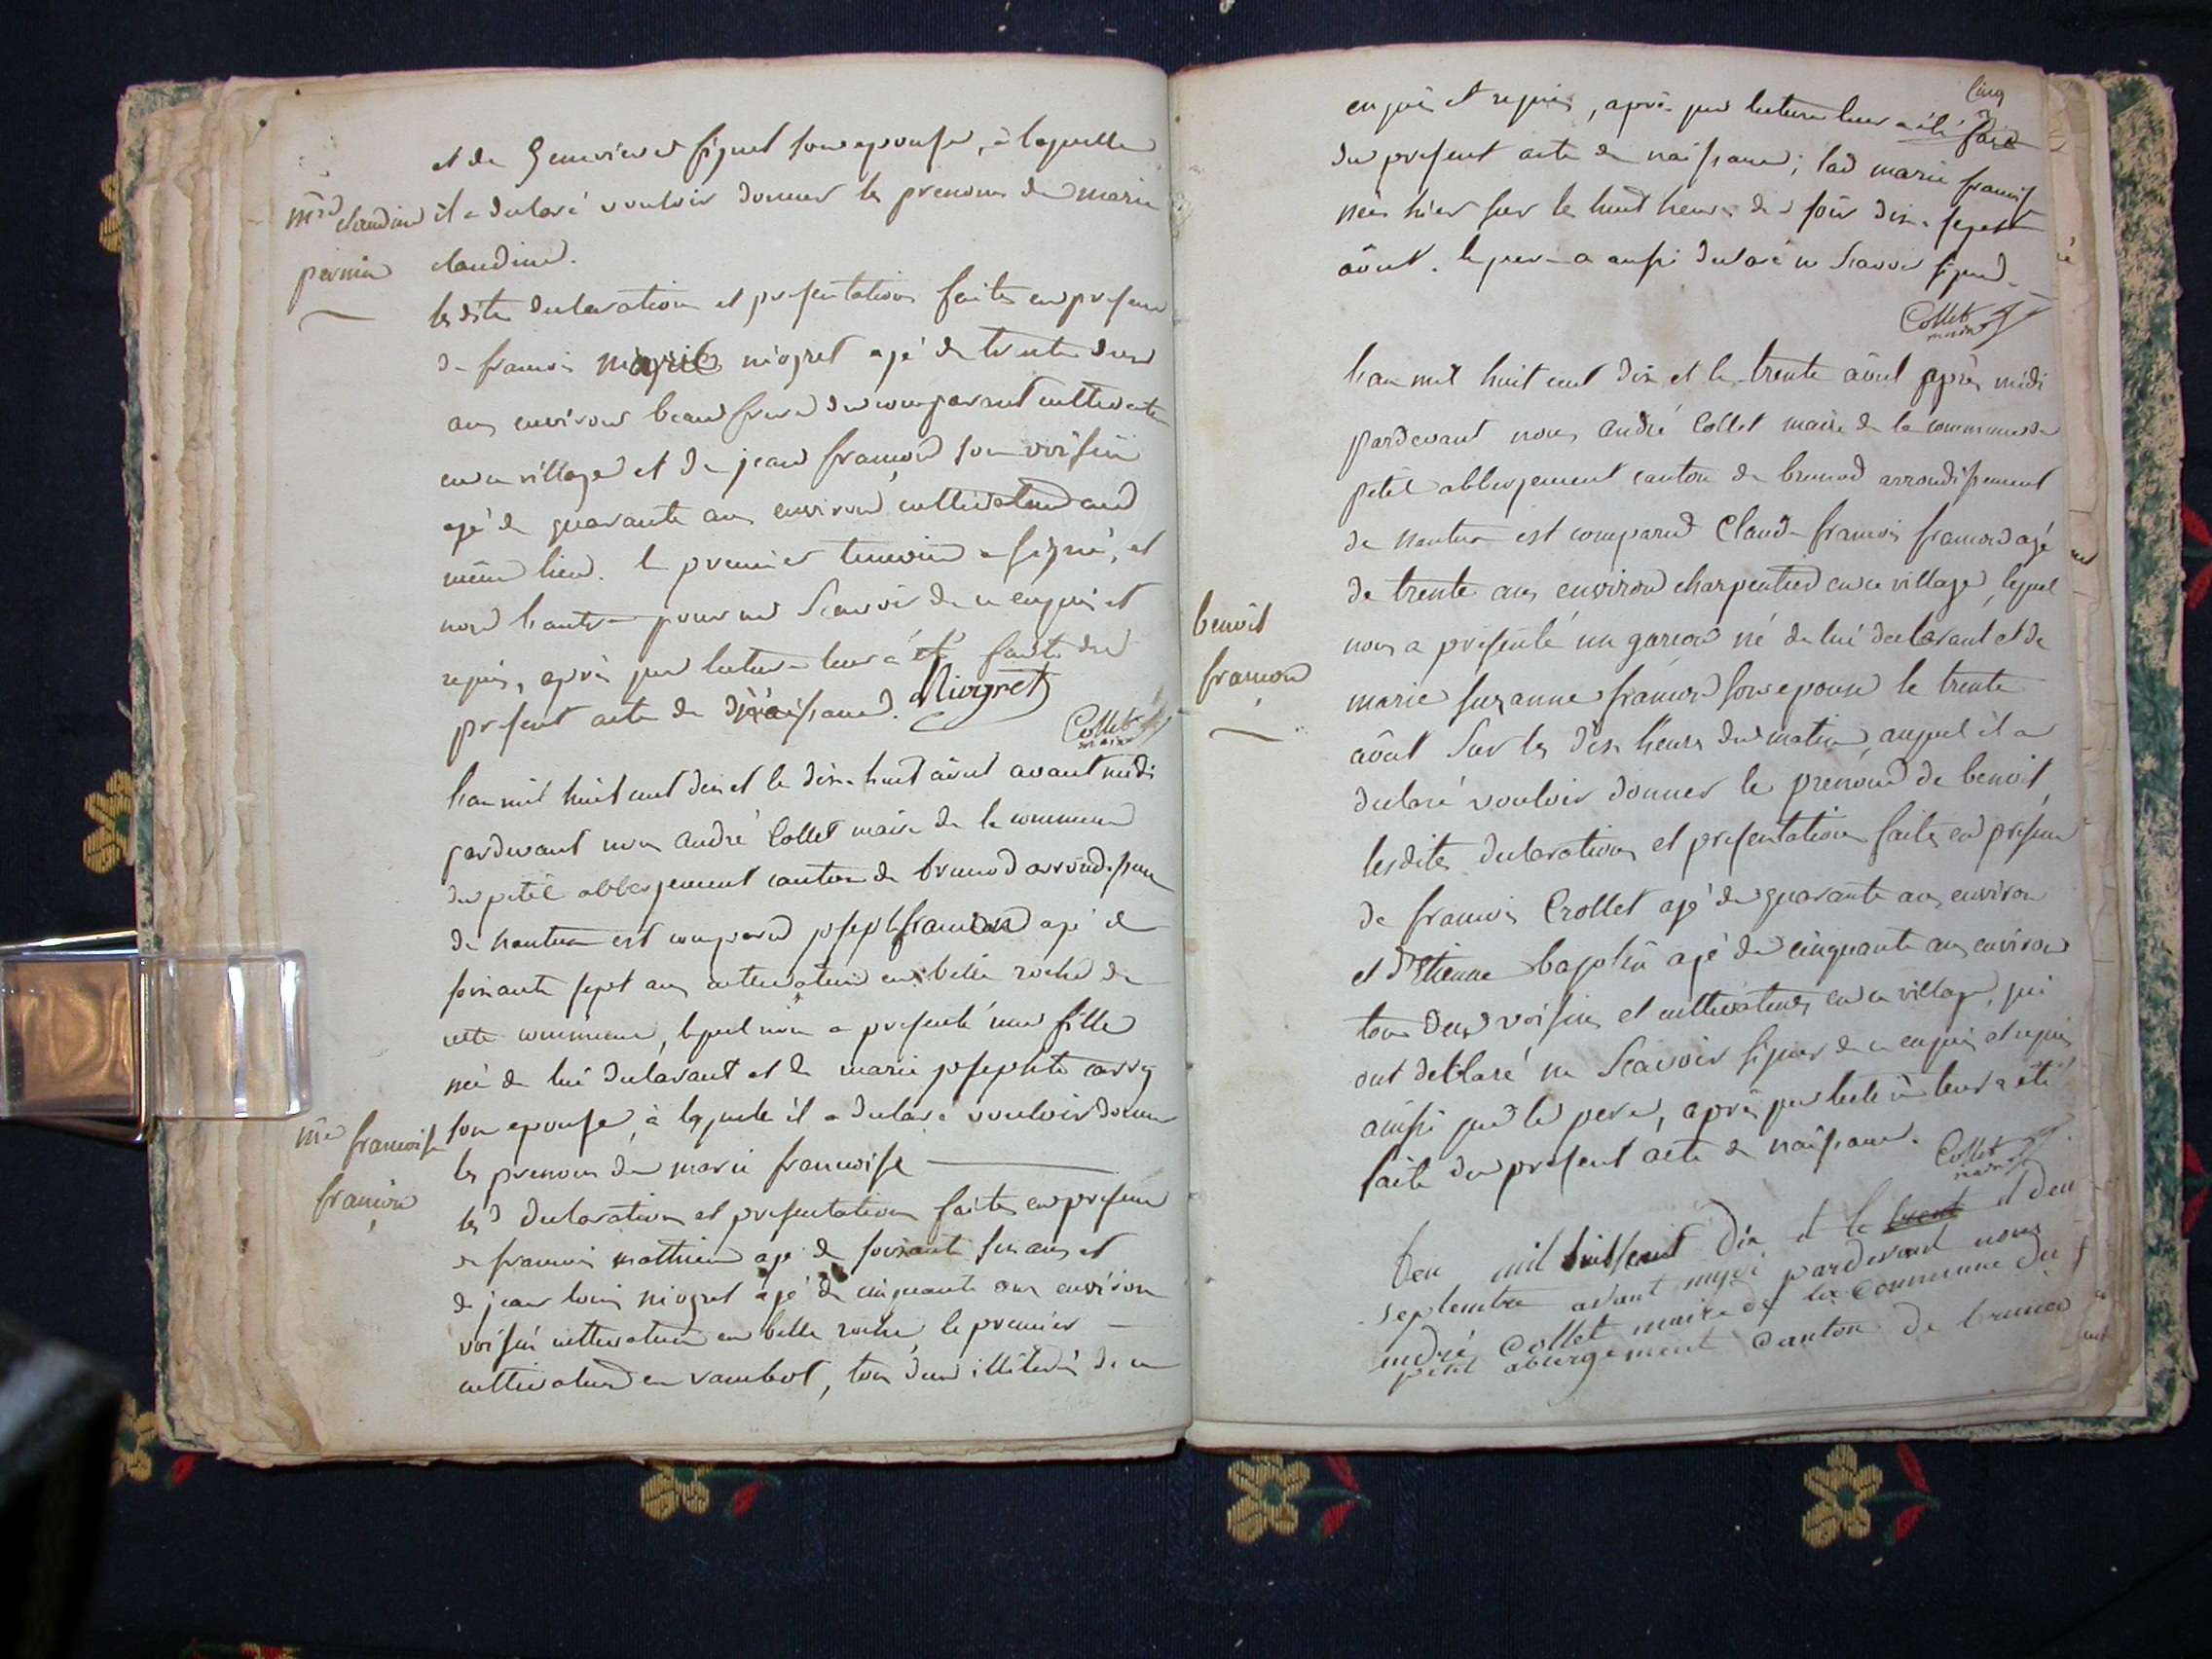 et de Genevieve son epouse, à laquelle
mie claudine
il a declaré vouloir donner les prenoms de marie
claudine.
lesdites declaration et presentation faites en presence
de francois niogret agé de trente deux
ans environ beau frere du comparant cultivateur
en ce village et de jean framond son voisin
agé de quarante ans environ cultivateur aud
même lieu. le premier temoin a signé, et
non l'autre pour ne scavoir de ce enquis et
requis, après que lecture leur a été faite du
present acte de naissance. Niogret
Collet
maire
l'an mil huit cent dix et le dix huit aôut avant midi
pardevant nous andré Collet maire de la commune
du petit abbergement canton de brenod arrondissem
de nantua est comparu joseph framond agé de
soixante sept ans cultivateur en belle roche de
cette commune, lequel nous a presenté une fille
née de lui declarant et de marie josephte
mie francoise
son epouse, à laquelle il a declaré vouloir donner
les prenoms de marie francoise
framon
lesd declaration et presentation faites en presence
de francois mathieu agé de soixante six ans et
de jean louis niogret agé de cinquante ans environ
voisin cultivateur en belle roche le premier
cultivateur en , tous deux illiterés de ce
cinq
enquis et requis, après que lecture leur a été faite
du present acte de naissance; lad marie francoise
née hier sur les huit heures du soir dix sept
aôut. le pere a aussi declaré ne scavoir signer.
Collet
maire
l'an mil huit cent dix et le trente aôut après midi
pardevant nous andré Collet maire de la commune du
petit abbergement canton de brenod arrondissement
de nantua est comparu Claude francois framond agé
de trente ans environ charpentier en ce village, lequel
benoît
nous a présenté un garcon né de lui declarant et de
framon
marie suzanne framond son epouse le trente
aôut sur les dix heures du matin, auquel il a
declaré vouloir donner le prénom de benoit,
lesdites declaration et presentation faites en presence
de francois Crollet agé de quarante ans environ
et d'Etienne agé de cinquante ans environ
tous deux voisins et cultivateurs en ce village, qui
ont declaré ne scavoir signer de ce enquis et requis
ainsi que le pere, après que lecture leur a été
faite du present acte de naissance.
Collet
maire
l'en mil huit cent dix et le trent et deu
septembre avant mydi pardevant nous
andré Collet maire de la commune du
petit abergement canton de brenod